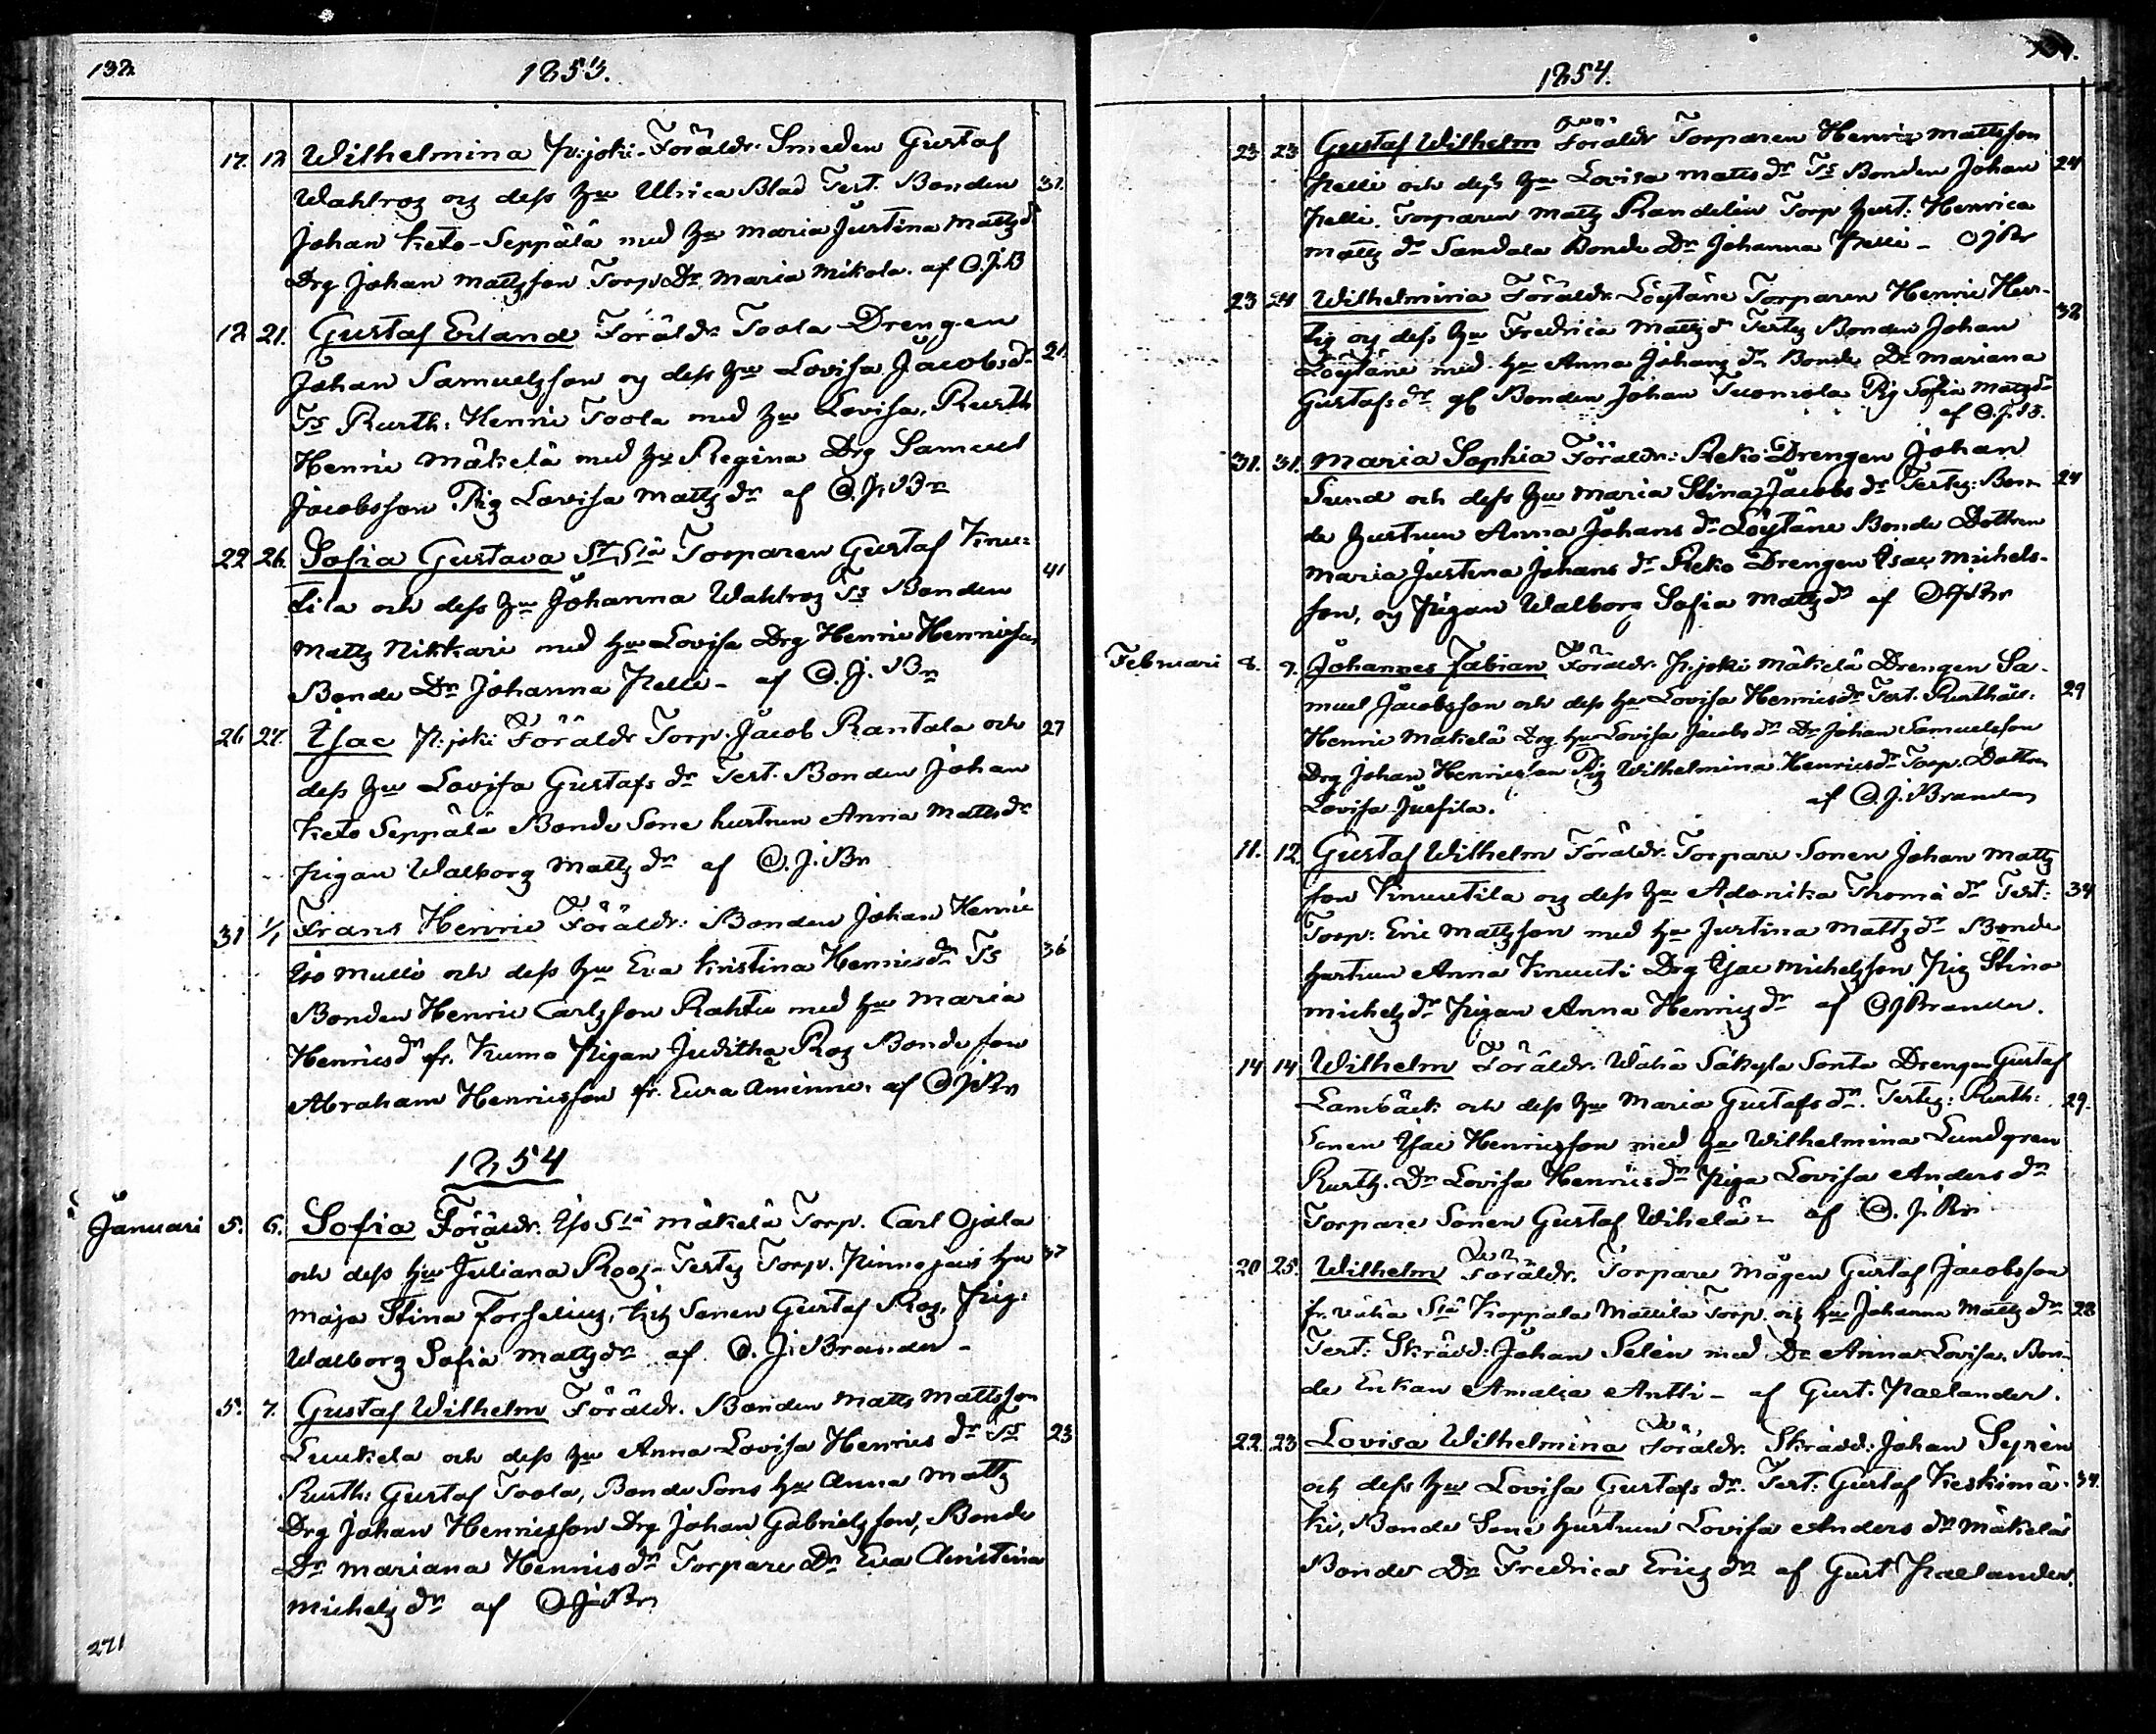 132
1853.
17. 17. Wilhelmina P:joki. Föräldr. Smeden Gustaf
Wahlroz og dess hu Ulrica Blad Test. Bonden 31.
Johan Keto-Seppälä med hu Maria Justina Mattzdr
Drg Johan Mattzson Torp Dr Maria Mikola. af C.J.B
17. 21. Gustaf Erland Föräldr. Toola Drengen
Johan Samuelzson og dess hu Lovisa Jacobsdr 21.
Ts Rusth. Henric Toola med hu Lovisa, Rusth
Henric Mäkelä med hu Regina Drg Samuel
Jacobsson Pig Lovisa Mattzdr af C.J.Br
22. 26. Sofia Gustava Torparen Gustaf
och dess hu Johanna Wahlroz Ts Bonden 41
Mattz Nikkari med hu Lovisa Drg Henric Henricson
Bonde Dr Johanna Pelli - af C.J.Br
26. 27. Isac P:joki Föräldr Torp. Jacob Rantala och 27
dess hu Lovisa Gustafs dr Test. Bonden Johan
Keto Seppälä Bonde Sone hustrun Anna Mattsdr
Pigan Walborg Mattz dr af C.J.Br
31 1/1 Frans Henric Föräldr: Bonden Johan Henric
Iso Mulli och dess hu Eva Kristina Henricsdr Ts 36
Bonden Henric Carlzson Rahtu med hu Maria
Henricsdr fr. Kumo Pigan Juditha Roz Bonde son
Abraham Henricsson fr. Eura Aminne. af C J Br
1854
Januari 5. 6. Sofia Föräldr. Mäkelä Torp. Carl Ojala
och dess hu Juliana Rooz - Testz Torp. hu 37
Maja Stina Forselius, Sonen Gustaf Roz, Pig:
Walborg Sofia Mattzdr af C.J.Brander -
5. 7. Gustaf Wilhelm Föräldr. Bonden Matts Mattsson
Luukela och dess hu Anna Lovisa Henrics dr Ts 23
Rusth: Gustaf Toola, Bonde Sons hu Anna Mattz
Drg Johan Henricsson Drg Johan Gabrielzson, Bonde
Dr Mariana Henricsdr Torpare Dr Eva Christina
Michelz dr af C J Br.
271
1854.
23 23 Gustaf Wilhelm Föräldr Torparen Henric Mattsson
Pelli och dess hu Lovisa Matts dr Ts Bonden Johan 24
Pelli. Torparen Mattz Randelin Torp hust: Henrica
Mattz dr Sandala Bonde Dr Johanna Pelli - C J Br
23 24 Wilhelmina Föräldr. Löytäne Torparen Henric Her-
tig og dess hu Fredrica Mattzdr Testz Bonden Johan 32
Löytäne med hu Anna Johanz dr Bonde Dr Mariana
Gustafs dr Bonden Johan Tuomola Pig Sofia Mattzdr
af C.J.B.
31. 31. Maria Sophia Föräldr: Reko: Drengen Johan
Sund och dess hu Maria Stina Jacobs dr Testez: Bon 24
de hustrun Anna Johans dr Löytäne Bonde Dottren
Maria Justina Johans dr Reko Drengen Isac Michels-
son, og Pigan Walborg Sofia Mattzdr af C J Br
Februari 8. 9. Johannes Fabian Föräldr. P:joki Mäkelä Drengen Sa-
muel Jacobsson och dess hu Lovisa Henricsdr Test. Rusthål: 29
Henric Mäkelä Drg hu Lovisa Jacobs dr Dr Johan Samuelsson
Drg Johan Henricsson Pig Wilhelmina Henricsdr Torp. Dottren
Lovisa Jussila. af C.J.Brander
11. 12. Gustaf Wilhelm Föräldr. Torpare Sonen Johan Mattz
son Knuutila og dess hu Adonika Thoma dr Test: 34
Torp: Eric Mattzson med hu Justina Mattzdr Bonde
hustrun Anna Knuuti Drg Isac Michelzson Pig Stina
Michelz dr Pigan Anna Henrizdr af C J Brander.
14 14 Wilhelm Föräldr. Wähä Säkylä Sonta Drengen Gustaf
Lambäck och dess hu Maria Gustafs dr. Testez: Rusth: 29.
Sonen Isac Henricsson med hu Wilhelmina Lundgren
Rusth. Dr Lovisa Henricsdr Piga Lovisa Anders dr
Torpare Sonen Gustaf Wihelä - af C.J.Br
20 25. Wilhelm Föräldr. Torpare Mågen Gustaf Jacobsson
fr. Vähä Koppala Mattila Torp. och hu Johanna Mattz dr 28
Test: Skrädd: Johan Selén med Dr Anna Lovisa, Bon-
de Enkan Amalia Antti - af Gust. Paelander.
22. 23 Lovisa Wilhelmina Föräldr. Skrädd: Johan Seprén
och dess hu Lovisa Gustafs dr. Test: Gustaf Keskimä- 34.
ki, Bonde Sone hustrun Lovisa Anders dr Mäkelä
Bonde Dr Fredrica Ericz dr af Gust Paelander.